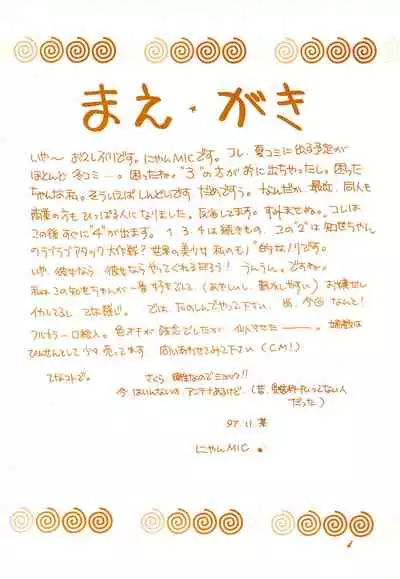 まえ・がき
いや〜 お久しぶりです。にゃんMICです。コレ、夏コミに出る予定が
ほとんど冬コミー。困ったわ。"3"の方が先に出ちゃったし。困った
ちゃんな私。そういえばしんどいです だめですぅ。なんだか、最近、同人も
商業の方もひっぱる人になりました。反省してます。すみませぬ。コレは
この後すぐに"4"が出ます。1 3.4は続きもの。この"2"は知世ちゃん
のラブラブアタック大作戦?世界の美少女 私のモノ"的なノリです。
いや、彼女なら 彼女ならやってくれるだろう! うんうん。ですわ。
私はこの知世ちゃんが一番 好きでして、(あやしいし、動かしやすい) お
てな感じ。では、たのしんでやって下さい。尚、今回 なんと!
フルカラー口絵入。
少々 売ってます 問いあわせてみて下さい(CM!)
てなコトで。 さくら、衛星なのでミョ〜っ!!
今、はいんないの。アンテナあるけど。(昔、受信料払っとない人
だった)
97.11.某
にゃんMIC.